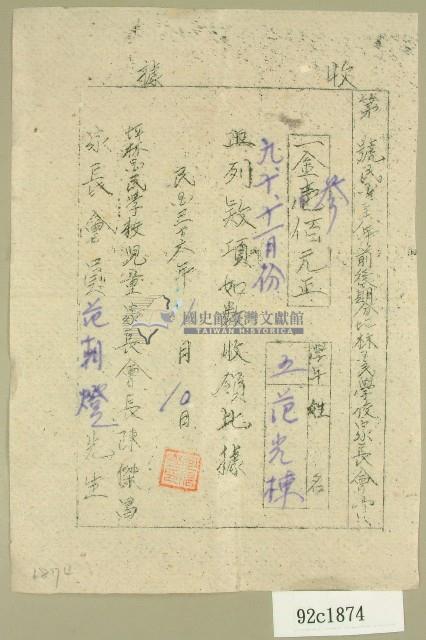 收據
第 號民國三十六年前後期分坪林國民學校家長會
學年 姓名
五 范光棟
一金壹佰元正
參
九、十、十一月份
照列款項如數收領此據
民國三十六年 月10日
坪林國民學校兒童家長會長陳傑昌
家長會員范朝燈先生
國史館臺灣文獻館
TAIWAN HISTORICA
1874
92c1874